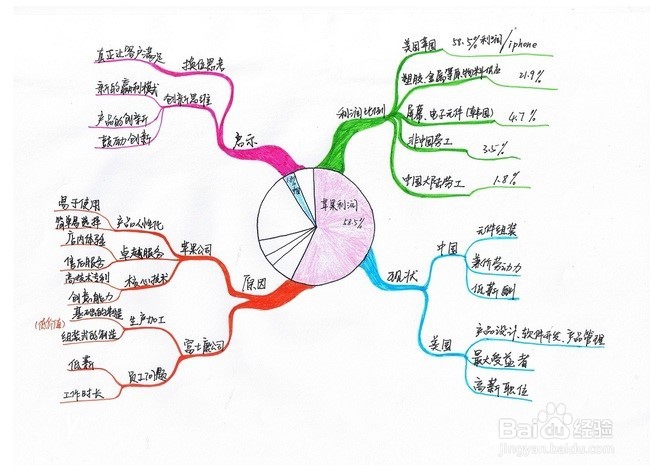 真正让客户满足
换位思考
新的赢利模式
创新思维
产品的创新
鼓励创新
启示
美国苹国
58.5%利润/iphone
塑胶、金属等原物料供应
21.9%
利润比例
屏幕、电子元件(韩国)
4.7%
非中国劳工
3.5%
中国大陆劳工
1.8%
苹果利润
58.5%
易于使用
简单易选择
产品人性化
店内体验
售后服务
卓越服务
苹果公司
高技术专利
创意能力
核心技术
原因
基础的制造
(低价值)
组装式的制造
生产加工
富士康公司
低薪
员工问题
工作时长
现状
中国
元件组装
廉价劳动力
低薪酬
美国
产品设计、软件开发、产品管理
最大受益者
高薪职位
Baidu经验
jingyan.baidu.com